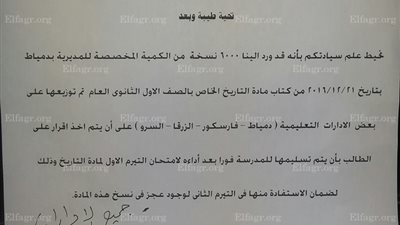 تحية طيبة وبعد
نحيط علم سيادتكم بأنه قد ورد الينا ٦٠٠٠ نسخة من الكمية المخصصة للمديرية بدمياط
بتاريخ ٢٠١٦/١٢/٢١ من كتاب مادة التاريخ الخاص بالصف الاول الثانوى العام تم توزيعها على
بعض الادارات التعليمية ( دمياط – فارسكور – الزرقا – السرو ) على أن يتم اخذ اقرار على
الطالب بأن يتم تسليمها للمدرسة فورا بعد أداءه لامتحان التيرم الاول لمادة التاريخ وذلك
لضمان الاستفادة منها فى التيرم الثانى لوجود عجز فى نسخ هذه المادة.
Elfagr.org